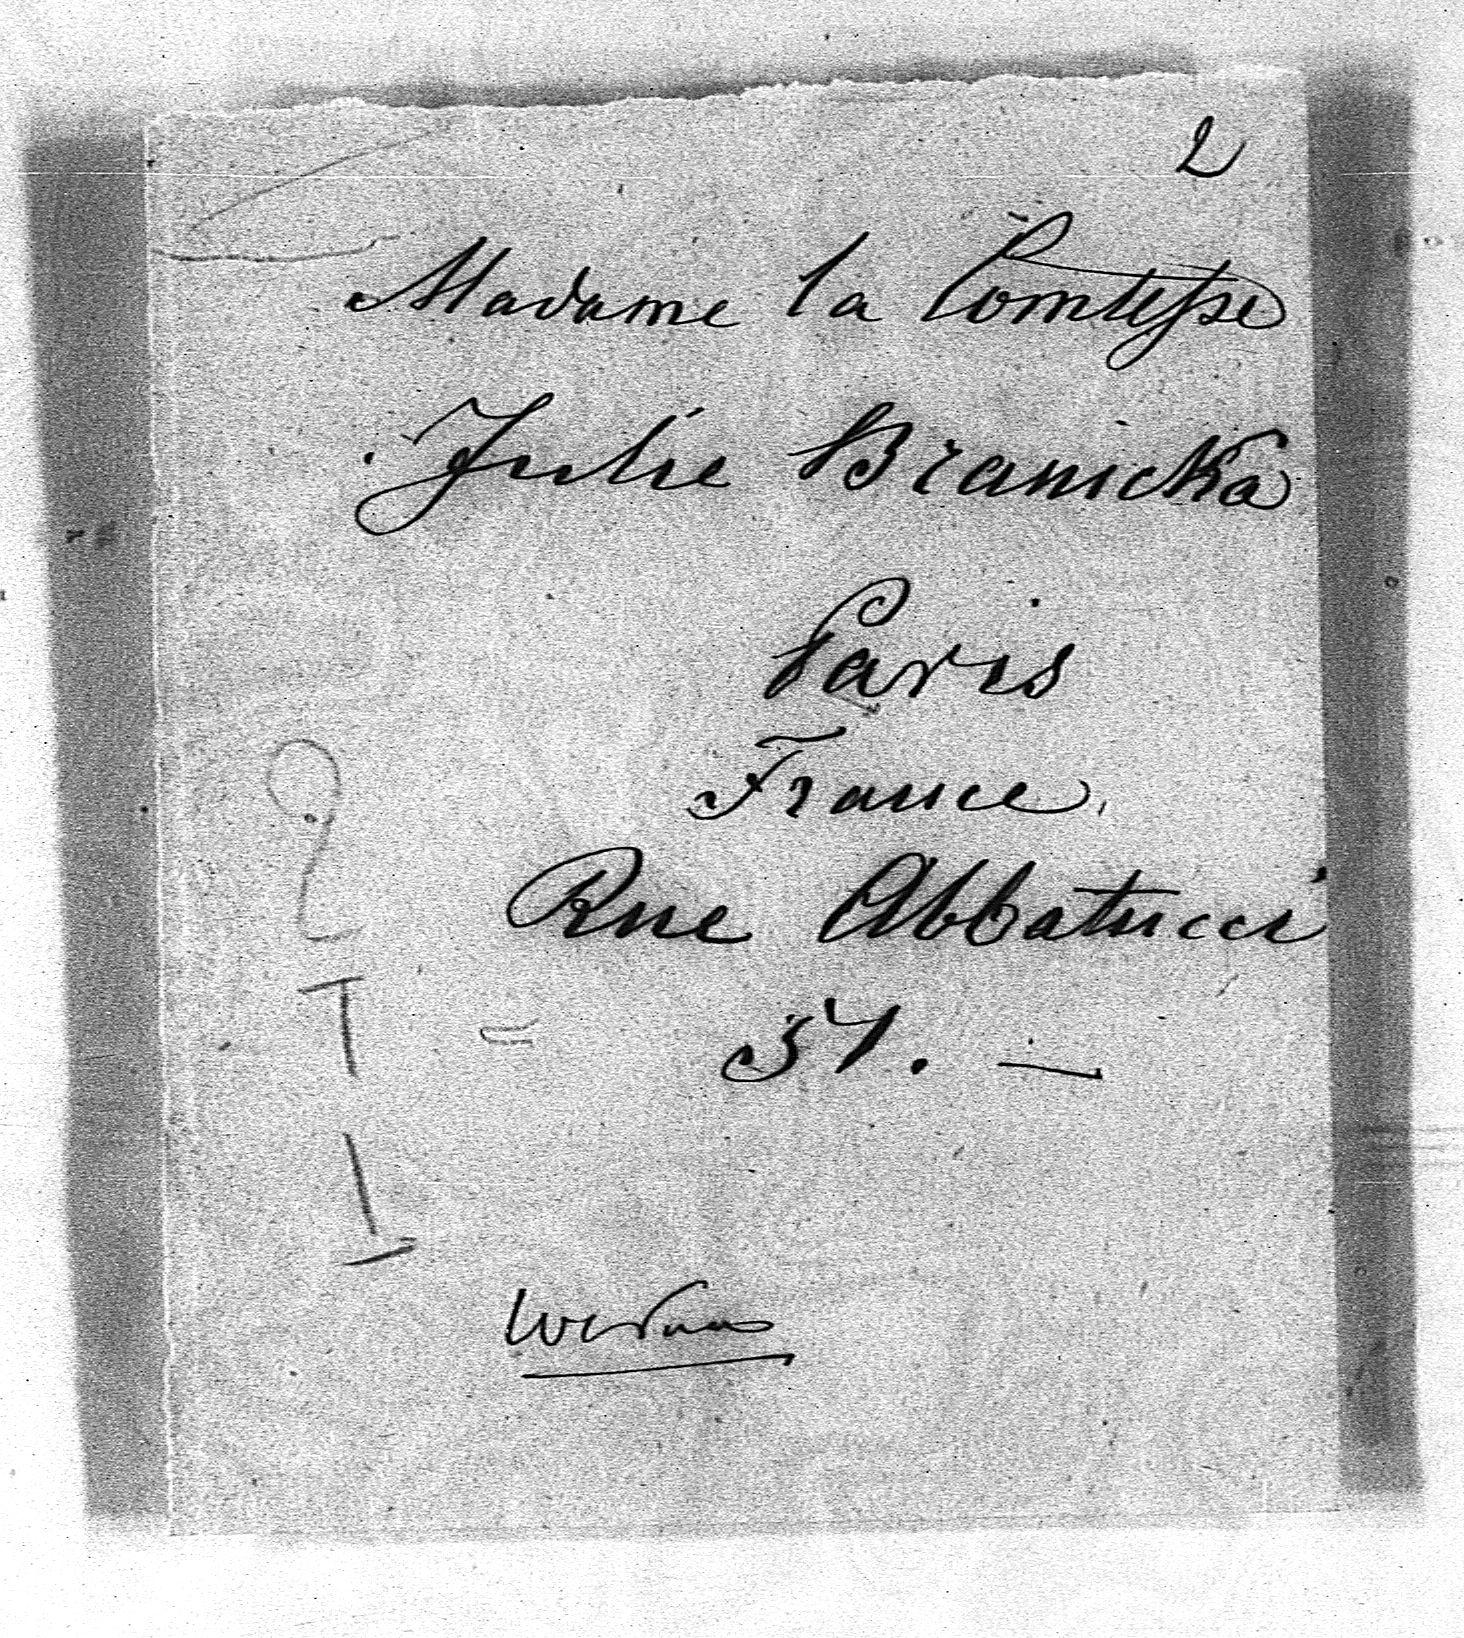 2
Madame la Comtesse
Julie Branicka
Paris
France.
Rue Abbatucci
37. —